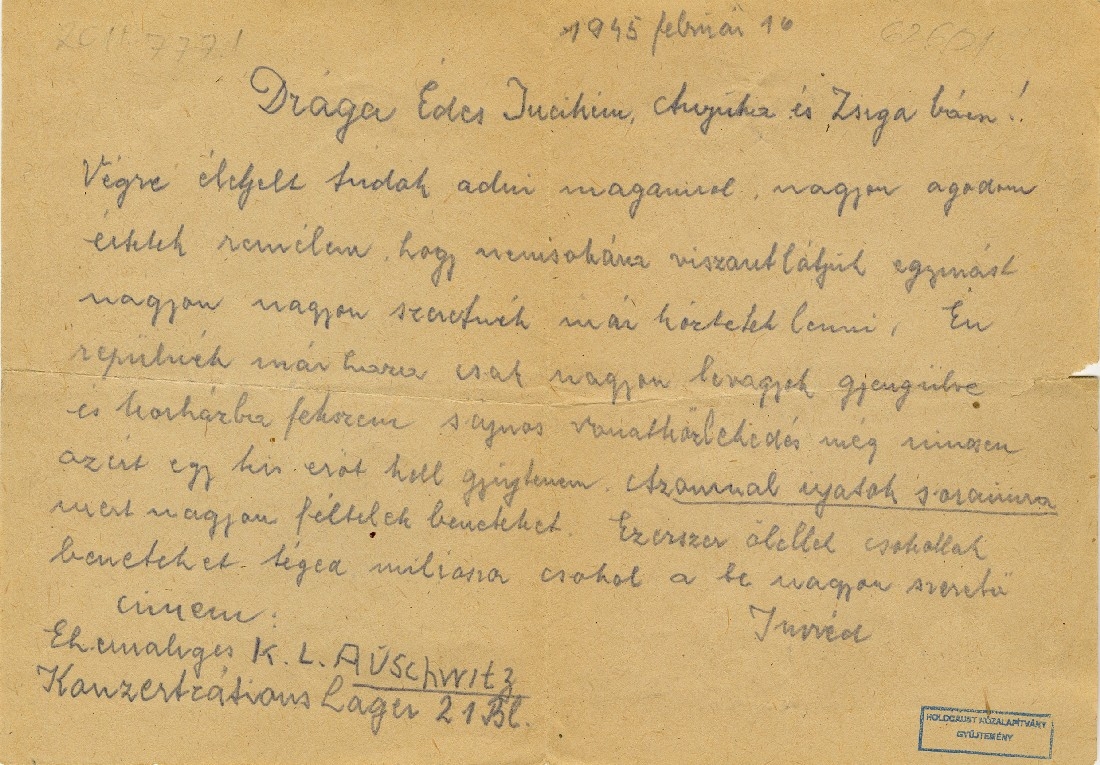 1945 február 16
2011.777.1
Drága Édes Jucikém, Anyuka és Zsiga bácsi!
Végre életjelt tudok adni magamrol, nagyon agodom
értetek remélem, hogy nemsokára viszantlátjuk egymást
nagyon nagyon szeretnék már köztetek lenni, Én
repülnék már haza csak nagyon levagyok gjengülve
és korházba fekszem sajnos vonatközlekedés még nincsen
azért egy kis erőt kell gyüjtenem. Azonnal irjatok soraimra
mert nagyon féltelek beneteket. Ezerszer ölellek csokollak
beneteket téged milioszor csokol a te nagyon szerető
cimem:
Ehemaliges K. L. AUSchwitz
Konzertrátions Lager 21 Bl.
HOLOCAUST KÖZALAPÍTVÁNY
GYŰJTEMÉNY